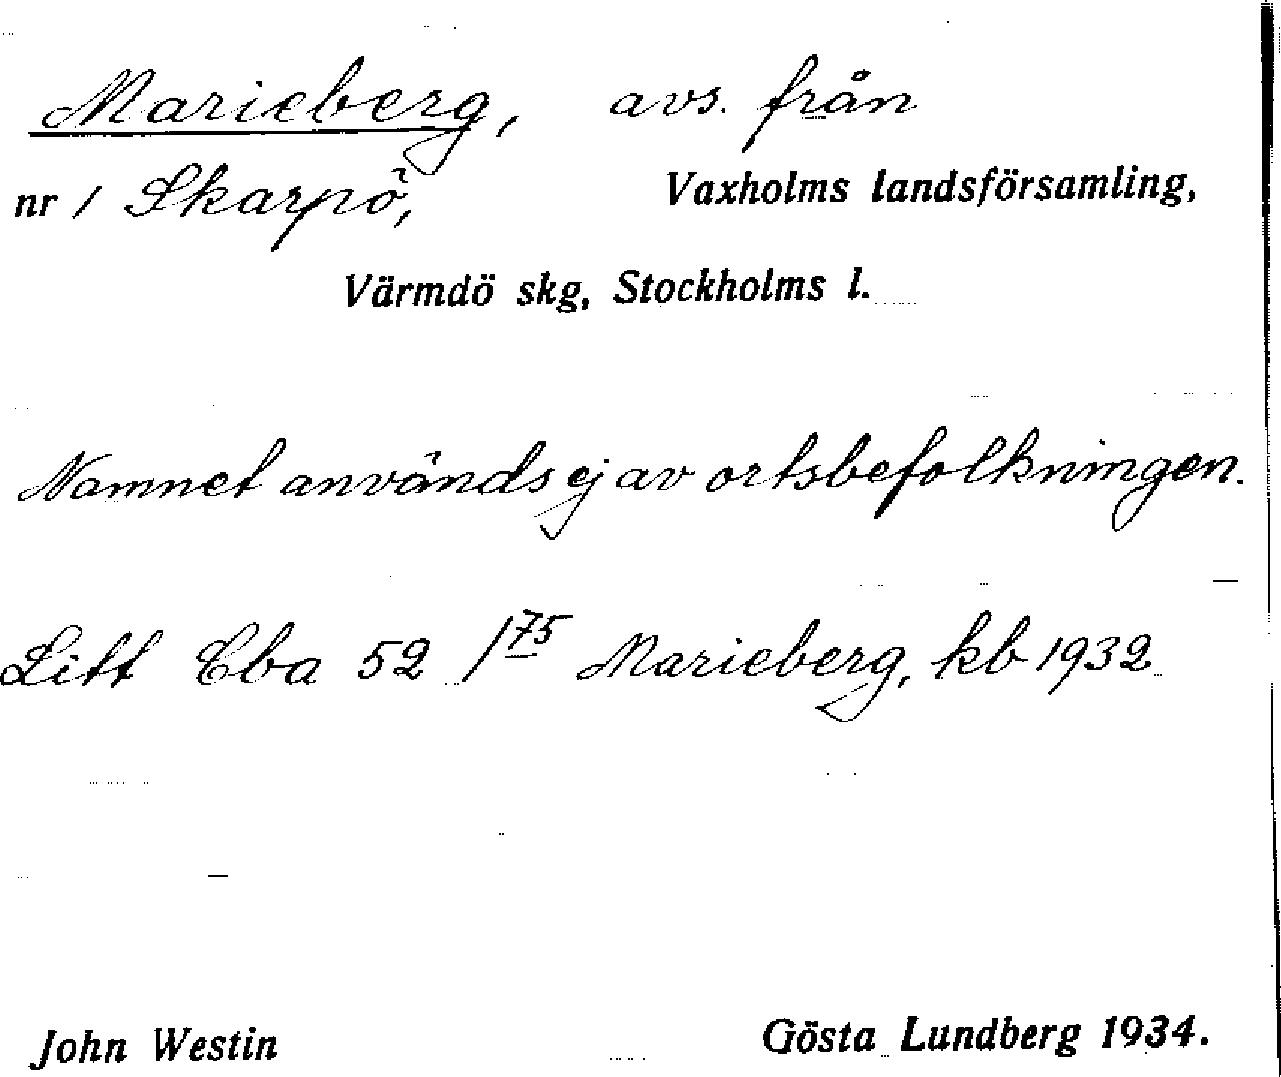 Marieberg, avs. från
nr 1 Skarpö, Vaxholms landsförsamling,
Värmdö skg, Stockholms l.
Namnet används ej av ortsbefolkningen.
Litt Cba 52 1 75 Marieberg, kb 1932
John Westin Gösta Lundberg 1934.